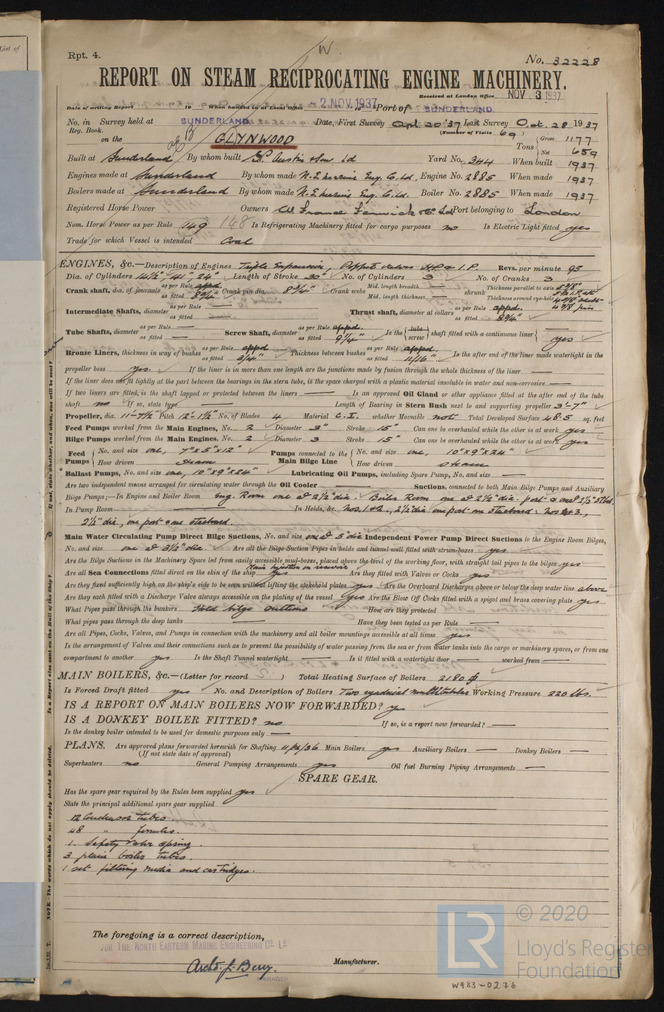 Rpt. 4.
W.
No. 32228
REPORT ON STEAM RECIPROCATING ENGINE MACHINERY.
Received at London Office NOV 3 1937
Date of writing Report 19 When handed in at Local Office 2. NOV. 1937 Port of SUNDERLAND
No. in Survey held at SUNDERLAND Date, First Survey Apl 20 '37 Last Survey Oct. 28 1937
Reg. Book. (Number of Visits 69)
on the GLYNWOOD Tons Gross 1177 Net 659
Built at Sunderland By whom built S.P. Austin & Son Ld Yard No. 344 When built 1937
Engines made at Sunderland By whom made N.E. Marine Eng. Co. Ld. Engine No. 2885 When made 1937
Boilers made at Sunderland By whom made N.E. Marine Eng. Co. Ld. Boiler No. 2885 When made 1937
Registered Horse Power Owners Wm France Fenwick & Co Ld Port belonging to London
Nom. Horse Power as per Rule 149 148 Is Refrigerating Machinery fitted for cargo purposes no Is Electric Light fitted yes
Trade for which Vessel is intended Coal
ENGINES, &c.—Description of Engines Triple Expansion, Poppet valves H.P. & I.P. Revs. per minute 95
Dia. of Cylinders Length of Stroke 30" No. of Cylinders 3 No. of Cranks 3
Crank shaft, dia. of journals as per Rule appd as fitted 8 3/4" Crank pin dia. 8 3/4" Crank webs Mid. length breadth — Mid. length thickness — Thickness parallel to axis Thickness around eye-hole
Intermediate Shafts, diameter as per Rule — as fitted — Thrust shaft, diameter at collars as per Rule appd. as fitted 8 3/4"
Tube Shafts, diameter as per Rule — as fitted — Screw Shaft, diameter as per Rule appd. as fitted 9 1/4" Is the tube screw shaft fitted with a continuous liner yes
Bronze Liners, thickness in way of bushes as per Rule appd as fitted Thickness between bushes as per Rule appd as fitted 11/16" Is the after end of the liner made watertight in the
propeller boss yes. If the liner is in more than one length are the junctions made by fusion through the whole thickness of the liner —
If the liner does not fit tightly at the part between the bearings in the stern tube, is the space charged with a plastic material insoluble in water and non-corrosive —
If two liners are fitted, is the shaft lapped or protected between the liners — Is an approved Oil Gland or other appliance fitted at the after end of the tube
shaft no If so, state type — Length of Bearing in Stern Bush next to and supporting propeller 3'-7"
Propeller, dia. 11'-7 1/2" Pitch 12'-1 1/2" No. of Blades 4 Material C.I. whether Moveable not Total Developed Surface 48.5 sq. feet
Feed Pumps worked from the Main Engines, No. 2 Diameter 3" Stroke 15" Can one be overhauled while the other is at work yes
Bilge Pumps worked from the Main Engines, No. 2 Diameter 3 Stroke 15" Can one be overhauled while the other is at work yes
Feed Pumps No. and size one, 7"x5"x12" How driven steam Pumps connected to the Main Bilge Line No. and size one, 10"x9"x24" How driven steam
Ballast Pumps, No. and size one, 10"x9"x24" Lubricating Oil Pumps, including Spare Pump, No. and size —
Are two independent means arranged for circulating water through the Oil Cooler — Suctions, connected to both Main Bilge Pumps and Auxiliary
Bilge Pumps;—In Engine and Boiler Room Eng. Room one @ 2 1/2" dia. Boiler Room one @ 2 1/2" dia. port & one 2 1/2" Stbd.
In Pump Room — In Holds, &c. Nos. 1 & 2, 2 1/2" dia one port one starboard. No 3,
2 1/2" dia, one port one starboard.
Main Water Circulating Pump Direct Bilge Suctions, No. and size one @ 5" dia Independent Power Pump Direct Suctions to the Engine Room Bilges,
No. and size one @ 3 1/2" dia. Are all the Bilge Suction Pipes in holds and tunnel well fitted with strum-boxes yes
Are the Bilge Suctions in the Machinery Space led from easily accessible mud-boxes, placed above the level of the working floor, with straight tail pipes to the bilges yes
Are all Sea Connections fitted direct on the skin of the ship yes Are they fitted with Valves or Cocks yes
Are they fixed sufficiently high on the ship's side to be seen without lifting the stokehold plates yes Are the Overboard Discharges above or below the deep water line above
Are they each fitted with a Discharge Valve always accessible on the plating of the vessel yes Are the Blow Off Cocks fitted with a spigot and brass covering plate yes
What Pipes pass through the bunkers Hold bilge suctions How are they protected
What pipes pass through the deep tanks — Have they been tested as per Rule —
Are all Pipes, Cocks, Valves, and Pumps in connection with the machinery and all boiler mountings accessible at all times yes
Is the arrangement of Valves and their connections such as to prevent the possibility of water passing from the sea or from water tanks into the cargo or machinery spaces, or from one
compartment to another yes Is the Shaft Tunnel watertight — Is it fitted with a watertight door — worked from —
MAIN BOILERS, &c.—(Letter for record ) Total Heating Surface of Boilers 2180
Is Forced Draft fitted yes No. and Description of Boilers Two cylindrical multitubular Working Pressure 220 lbs.
IS A REPORT ON MAIN BOILERS NOW FORWARDED? yes
IS A DONKEY BOILER FITTED? no If so, is a report now forwarded? —
Is the donkey boiler intended to be used for domestic purposes only —
PLANS. Are approved plans forwarded herewith for Shafting 11/12/36 Main Boilers yes Auxiliary Boilers — Donkey Boilers —
(If not state date of approval)
Superheaters no General Pumping Arrangements yes Oil fuel Burning Piping Arrangements —
SPARE GEAR.
Has the spare gear required by the Rules been supplied yes
State the principal additional spare gear supplied
12 Condenser tubes.
48 " ferrules.
1. Safety valve spring.
3 plain boiler tubes.
1 set filtering media and cartridges.
The foregoing is a correct description,
FOR THE NORTH EASTERN MARINE ENGINEERING Co. Ld.
Archd. J. Berry Manufacturer.
MANAGER
© 2020
LR
Lloyd's Register
Foundation
W983-0276